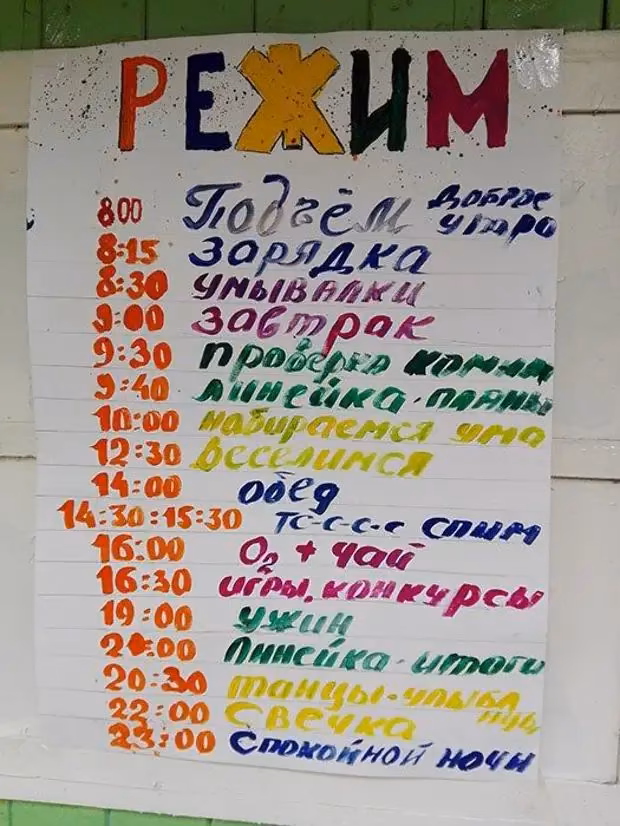 РЕЖИМ
800 Подъём Доброе утро
8:15 зарядка
8:30 умывалки
9:00 завтрак
9:30 проверка комнат
9:40 линейка-планы
10:00 набираемся ума
12:30 веселимся
14:00 обед
14:30:15:30 тс-с-с-с спим
16:00 O₂ + чай
16:30 игры, конкурсы
19:00 ужин
20:00 линейка-итоги
20:30 танцы-улыбл
22:00 Свечка
23:00 Спокойной ночи